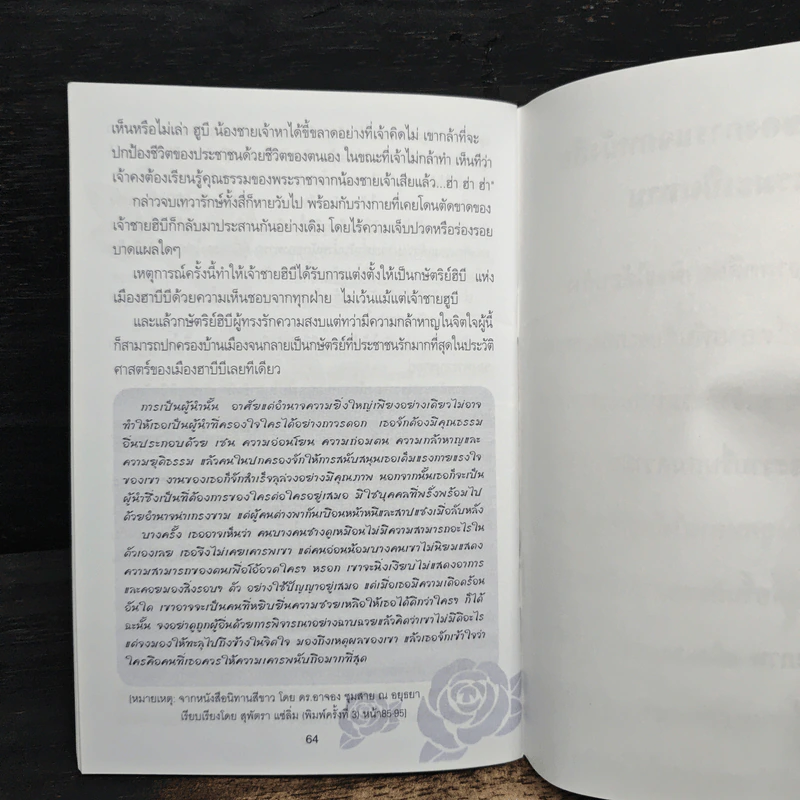 เห็นหรือไม่เล่า ฮูบี น้องชายเจ้าหาได้ขี้ขลาดอย่างที่เจ้าคิดไม่ เขากล้าที่จะ
ปกป้องชีวิตของประชาชนด้วยชีวิตของตนเอง ในขณะที่เจ้าไม่กล้าทำ เห็นทีว่า
เจ้าคงต้องเรียนรู้คุณธรรมของพระราชาจากน้องชายเจ้าเสียแล้ว...ฮ่า ฮ่า ฮ่า"
กล่าวจบเทวารักษ์ทั้งสี่ก็หายวับไป พร้อมกับร่างกายที่เคยโดนตัดขาดของ
เจ้าชายฮิบีก็กลับมาประสานกันอย่างเดิม โดยไร้ความเจ็บปวดหรือร่องรอย
บาดแผลใดๆ
เหตุการณ์ครั้งนี้ทำให้เจ้าชายฮิบีได้รับการแต่งตั้งให้เป็นกษัตริย์ฮิบี แห่ง
เมืองฮาบีบีด้วยความเห็นชอบจากทุกฝ่าย ไม่เว้นแม้แต่เจ้าชายฮูบี
และแล้วกษัตริย์ฮิบีผู้ทรงรักความสงบแต่ทว่ามีความกล้าหาญในจิตใจผู้นี้
ก็สามารถปกครองบ้านเมืองจนกลายเป็นกษัตริย์ที่ประชาชนรักมากที่สุดในประวัติ
ศาสตร์ของเมืองฮาบีบีเลยทีเดียว
การเป็นผู้นำนั้น อาศัยแต่อำนาจความยิ่งใหญ่เพียงอย่างเดียวไม่อาจ
ทำให้เธอเป็นผู้นำที่ครองใจใครได้อย่างถาวรดอก เธอจักต้องมีคุณธรรม
อื่นประกอบด้วย เช่น ความอ่อนโยน ความถ่อมตน ความกล้าหาญและ
ความยุติธรรม แล้วคนในปกครองจักให้การสนับสนุนเธอเต็มแรงกายแรงใจ
ของเขา งานของเธอก็จักสำเร็จลุล่วงอย่างมีคุณภาพ นอกจากนั้นเธอก็จะเป็น
ผู้นำซึ่งเป็นที่ต้องการของใครต่อใครอยู่เสมอ มิใช่บุคคลที่พรั่งพร้อมไป
ด้วยอำนาจน่าเกรงขาม แต่ผู้คนต่างพากันเบือนหน้าหนีและสาปแช่งเมื่อลับหลัง
บางครั้ง เธออาจเห็นว่า คนบางคนช่างดูเหมือนไม่มีความสามารถอะไรใน
ตัวเองเลย เธอจึงไม่เคยเคารพเขา แต่คนอ่อนน้อมบางคนเขาไม่นิยมแสดง
ความสามารถของตนเพื่อโอ้อวดใครๆ หรอก เขาจะนิ่งเงียบไม่แสดงอาการ
และคอยมองสิ่งรอบๆ ตัว อย่างใช้ปัญญาอยู่เสมอ แต่เมื่อเธอมีความเดือดร้อน
อันใด เขาอาจจะเป็นคนที่หยิบยื่นความช่วยเหลือให้เธอได้ดีกว่าใครๆ ก็ได้
ฉะนั้น จงอย่าดูถูกผู้อื่นด้วยการพิจารณาอย่างฉาบฉวยแล้วคิดว่าเขาไม่มีดีอะไร
แต่จงมองให้ทะลุไปถึงข้างในจิตใจ มองถึงเหตุผลของเขา แล้วเธอจักเข้าใจว่า
ใครคือคนที่เธอควรให้ความเคารพนับถือมากที่สุด
(หมายเหตุ: จากหนังสือนิทานสีขาว โดย ดร.อาจอง ชุมสาย ณ อยุธยา
เรียบเรียงโดย สุพัตรา แซ่ลิ่ม (พิมพ์ครั้งที่ 3) หน้า85-95)
64